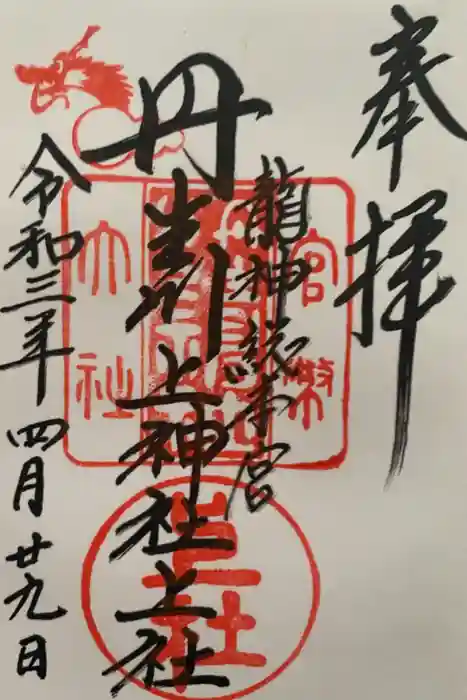 奉拝
龍神総本宮
丹生川上神社上社
令和三年四月廿九日
官幣
大社
上社